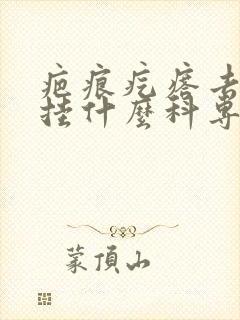 疤痕疙瘩去
挂什麼科專
蒙頂山